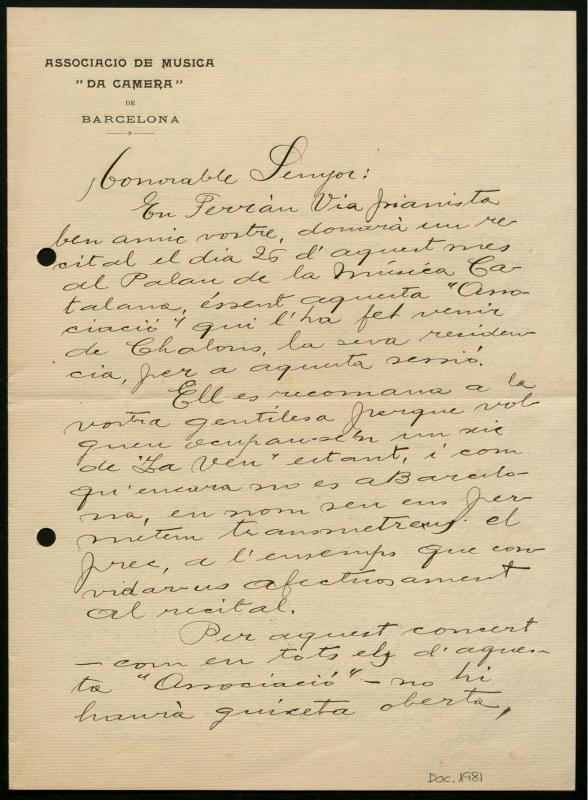 ASSOCIACIO DE MUSICA
"DA CAMERA"
DE
BARCELONA
Honorable Senyor:
En Ferràn Via pianista
ben amic vostre, donarà un re-
cital el dia 26 d'aquest mes
al Palau de la Música Ca-
talana, éssent aquesta "Asso-
ciació" qui l'ha fet venir
de Chalons, la seva residen-
cia, per a aquesta sessió.
Ell es recomana a la
vostra gentilesa perque vol-
gueu ocupau-se'n un xic
de "La Veu" estant, i com
qu'encara no es a Barcelo-
na, en nom seu ens per-
metem transmetreus el
prec, a l'ensemps que con-
vidarvos afectuosament
al recital.
Per aquest concert
- com en tots els d'aques-
ta "Associació" - no hi
haurà guixeta oberta,
Doc. 1981